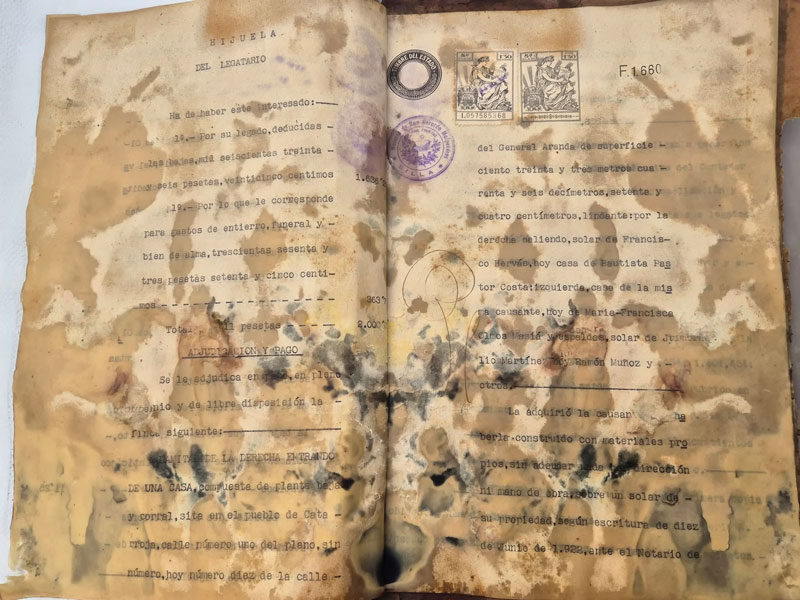 HIJUELA
DEL LEGATARIO
Ha de haber este interesado:
1º.- Por su legado, deducidas
bajas, mil seiscientas treinta
y seis pesetas, veinticinco centimos 1.636
1º.- Por lo que le corresponde
para gastos de entierro, funeral y -
bien de alma, trescientas sesenta y
tres pesetas setenta y cinco centi-
mos 363
Total, mil pesetas - - - 2.000
ADJUDICACION Y PAGO
Se le adjudica en pago, en pleno
dominio y de libre disposición la -
finca siguiente:
MITAD DE LA DERECHA ENTRANDO
DE UNA CASA, compuesta de planta baja
y corral, sita en el pueblo de Cata-
rroja, calle número uno del plano, sin
número, hoy número diez de la calle -
TIMBRE DEL ESTADO
8ª 1'50
8ª 1'50
1,057585368
F.1.660
del General Aranda de superficie -
ciento treinta y tres metros cua -
renta y seis decímetros, setenta y
cuatro centímetros, lindante: por la
derecha saliendo, solar de Francis-
co Hervás, hoy casa de Bautista Pas
tor Costa; izquierda, casa de la mis
ma causante, hoy de Maria-Francisca
Olmos Masiá y espaldas, solar de
lio Martinez, hoy Ramón Muñoz y -
otros.
La adquirió la causante ha
berla construido con materiales pro
pios, sin adeudar nada dirección
ni mano de obra, sobre un solar de -
su propiedad, según escritura de diez
de Junio de 1.922, ante el Notario de